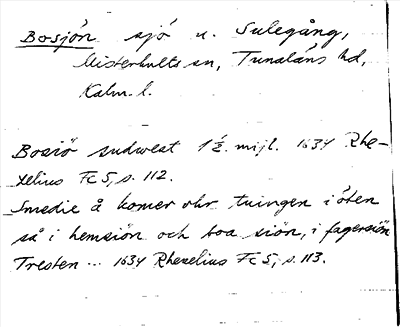 Bosjön sjö n. Sulegång,
Misterhults sn, Tunaläns hd,
Kalm. l.
Bosiö sudwest 1 ½. mijl. 1634 Rhe-
zelius Fc 5, s. 112.
Smedie å komer uhr tuingen i öten
så i hemsiön och boa siön, i fagersiön
Tresten ... 1634 Rhezelius Fc 5, s. 113.